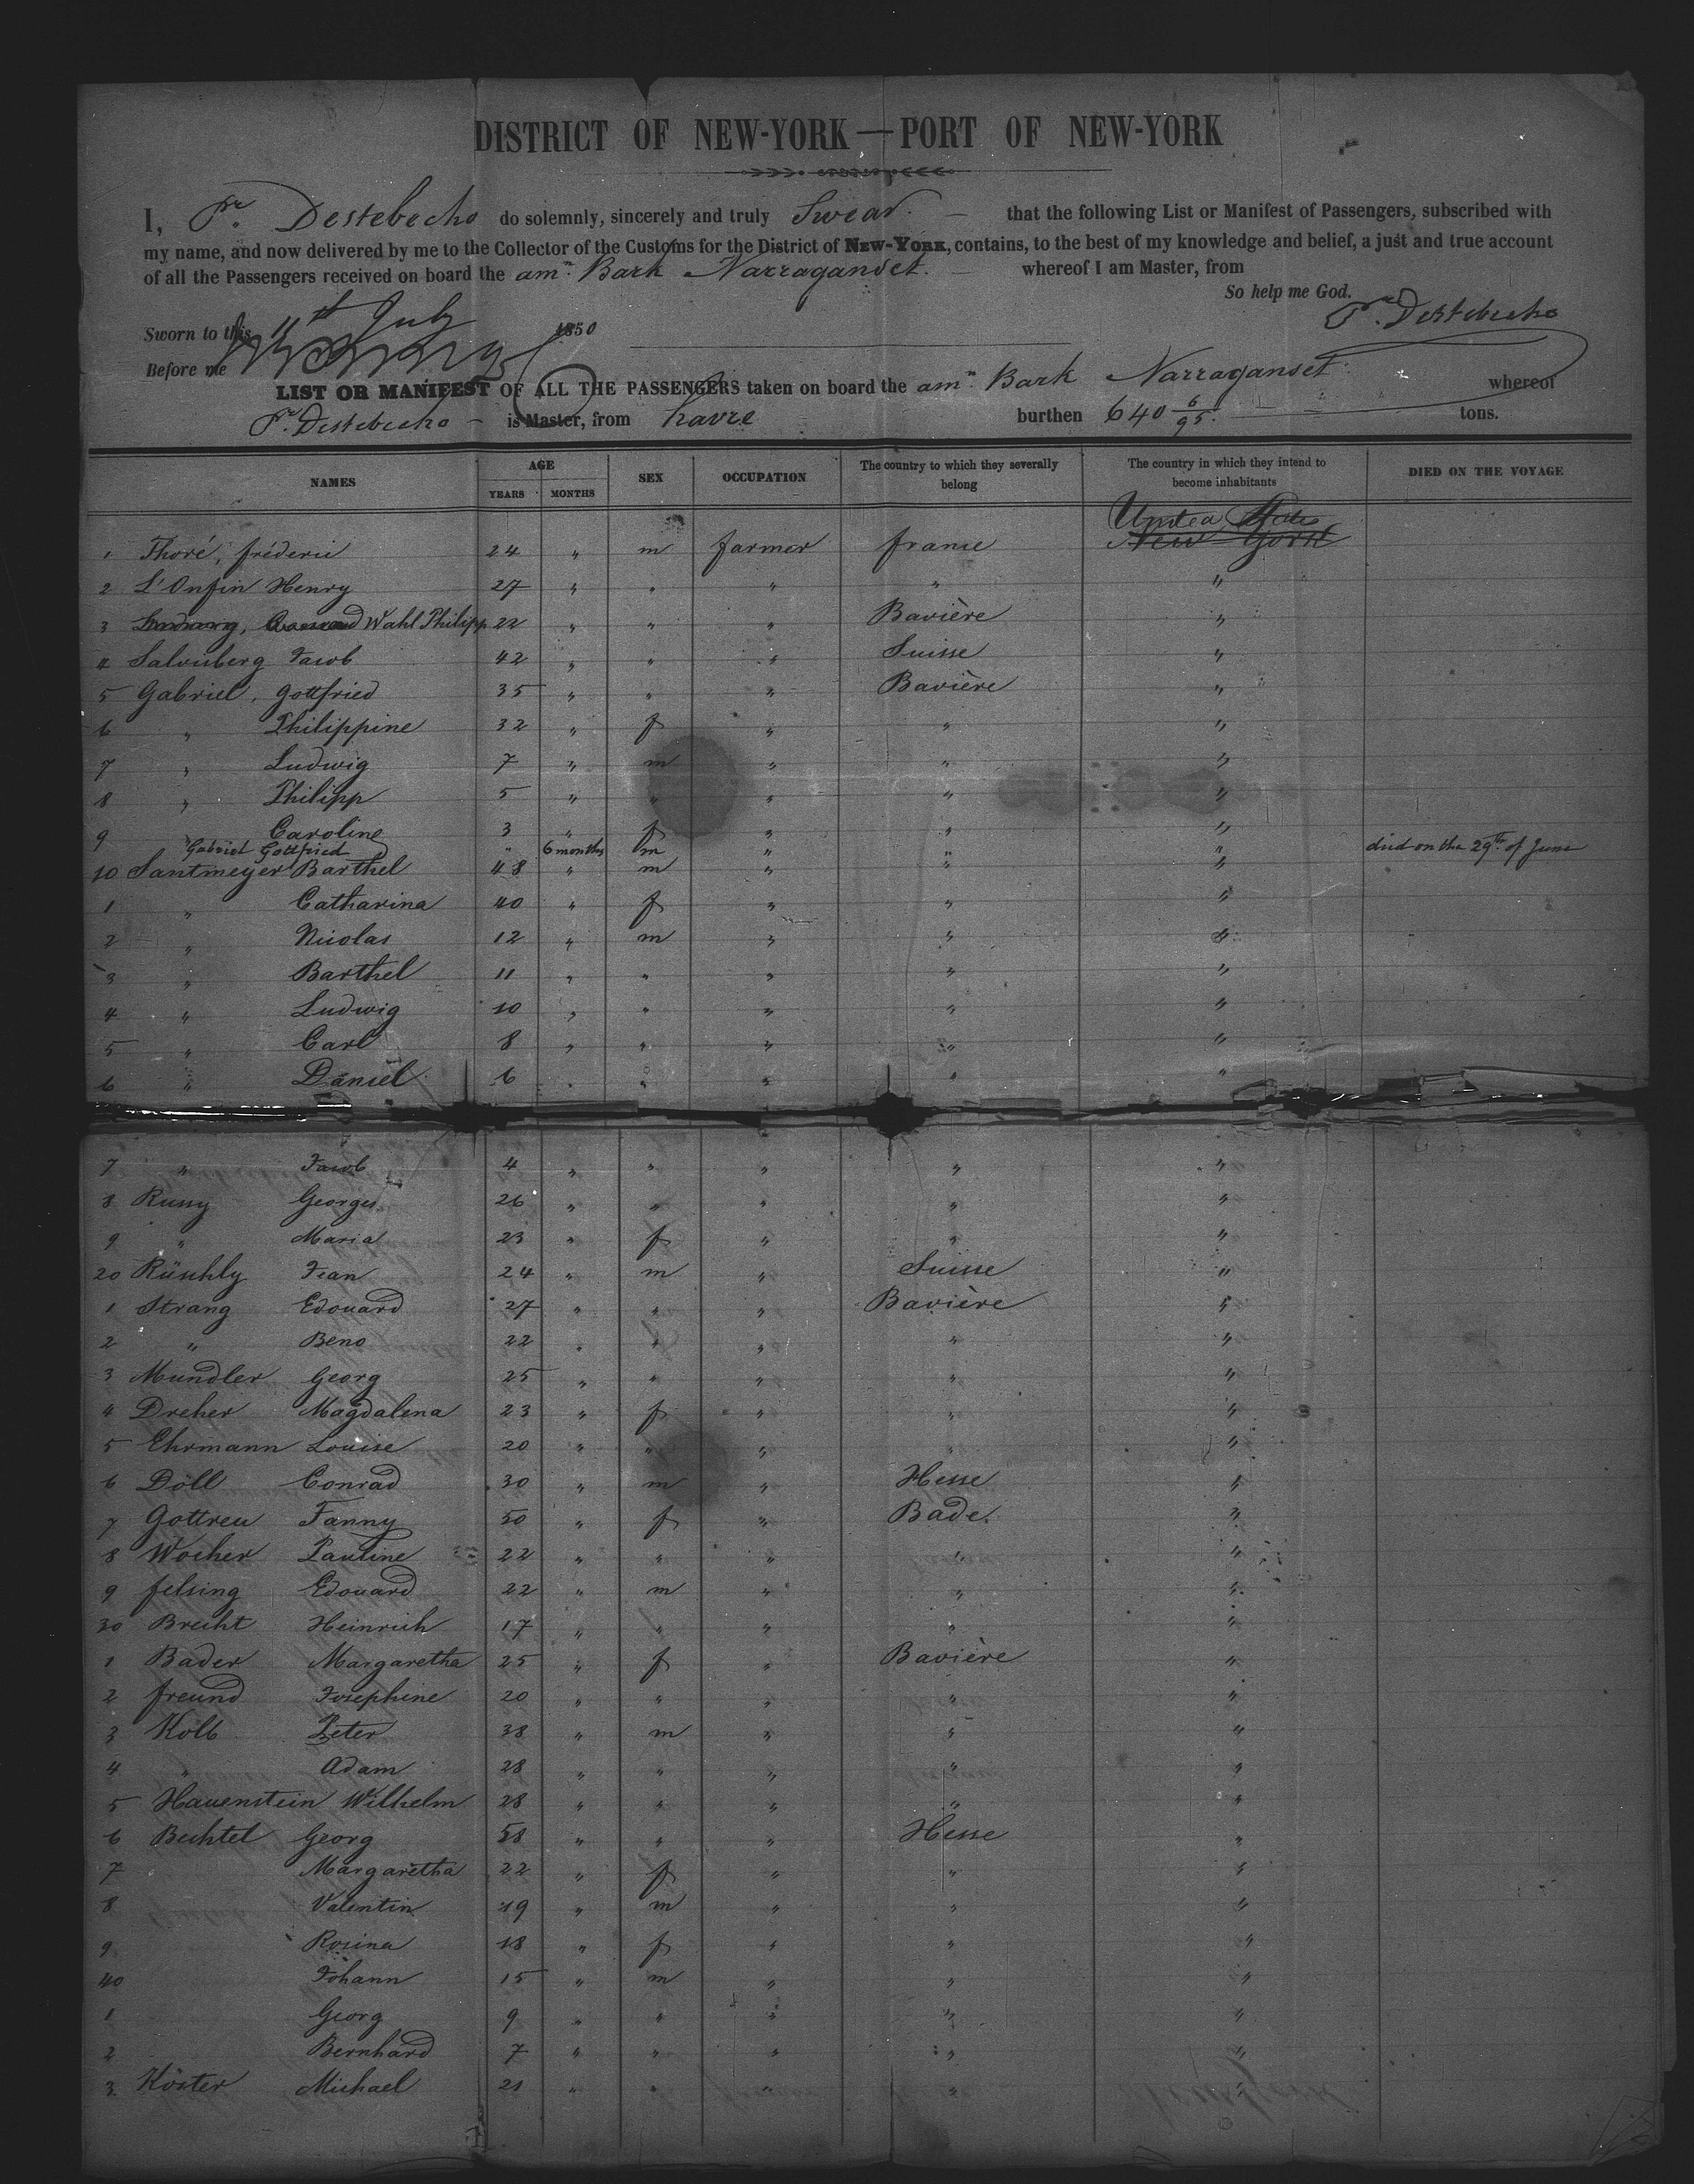 DISTRICT OF NEW-YORK — PORT OF NEW-YORK
I, Pre. Destebecho do solemnly, sincerely and truly Swear. that the following List or Manifest of Passengers, subscribed with
my name, and now delivered by me to the Collector of the Customs for the District of NEW-YORK, contains, to the best of my knowledge and belief, a just and true account
of all the Passengers received on board the amn. Bark Narraganset. whereof I am Master, from
So help me God.
Sworn to this 11th July 1850 Pre. Destebecho
Before me
LIST OR MANIFEST OF ALL THE PASSENGERS taken on board the amn. Bark Narraganset whereof
Pre. Destebecho is Master, from havre burthen 640 6/95 tons.
NAMES AGE YEARS MONTHS SEX OCCUPATION The country to which they severally belong The country in which they intend to become inhabitants DIED ON THE VOYAGE
United States
1 Thoré, fréderic 24 " m farmer france New York
2 L'Onfin Henry 27 " " " " "
3 Wahl Philipp 22 " " " Bavière "
4 Jacob 42 " " " Suisse "
5 Gabriel, Gottfried 35 " " " Bavière "
6 " Philippine 32 " f " " "
7 " Ludwig 7 " m " " "
8 " Philipp 5 " " " " "
9 " Caroline 3 " f " " "
Gabriel Gottfried " 6 months m " " " died on the 29th of June
10 Santmeyer Barthel 48 " m " " "
1 " Catharina 40 " f " " "
2 " Nicolas 12 " m " " "
3 " Barthel 11 " " " " "
4 " Ludwig 10 " " " " "
5 " Carl 8 " " " " "
6 " Daniel 6 " " " " "
7 " Jacob 4 " " " " "
8 Russy Georges 26 " " " " "
9 " Maria 23 " f " " "
20 Rüschly Jean 24 " m " Suisse "
1 Strang Edouard 27 " " " Bavière "
2 " Beno 22 " " " " "
3 Mundler Georg 25 " " " " "
4 Dreher Magdalena 23 " f " " "
5 Ehrmann Louise 20 " " " " "
6 Döll Conrad 30 " m " Hesse "
7 Gottreu Fanny 50 " f " Bade. "
8 Wocher Pauline 22 " " " " "
9 felsing Edouard 22 " m " " "
30 Brecht Heinrich 17 " " " " "
1 Bader Margaretha 25 " f " Bavière "
2 freund Josephine 20 " " " " "
3 Kolb Peter 38 " m " " "
4 " Adam 28 " " " " "
5 Hauenstein Wilhelm 28 " " " " "
6 Bechtel Georg 58 " " " Hesse "
7 Margaretha 22 " f " " "
8 Valentin 19 " m " " "
9 Rosina 18 " f " " "
40 Johann 15 " m " " "
1 Georg 9 " " " " "
2 Bernhard 7 " " " " "
3 Köster Michael 21 " " " "